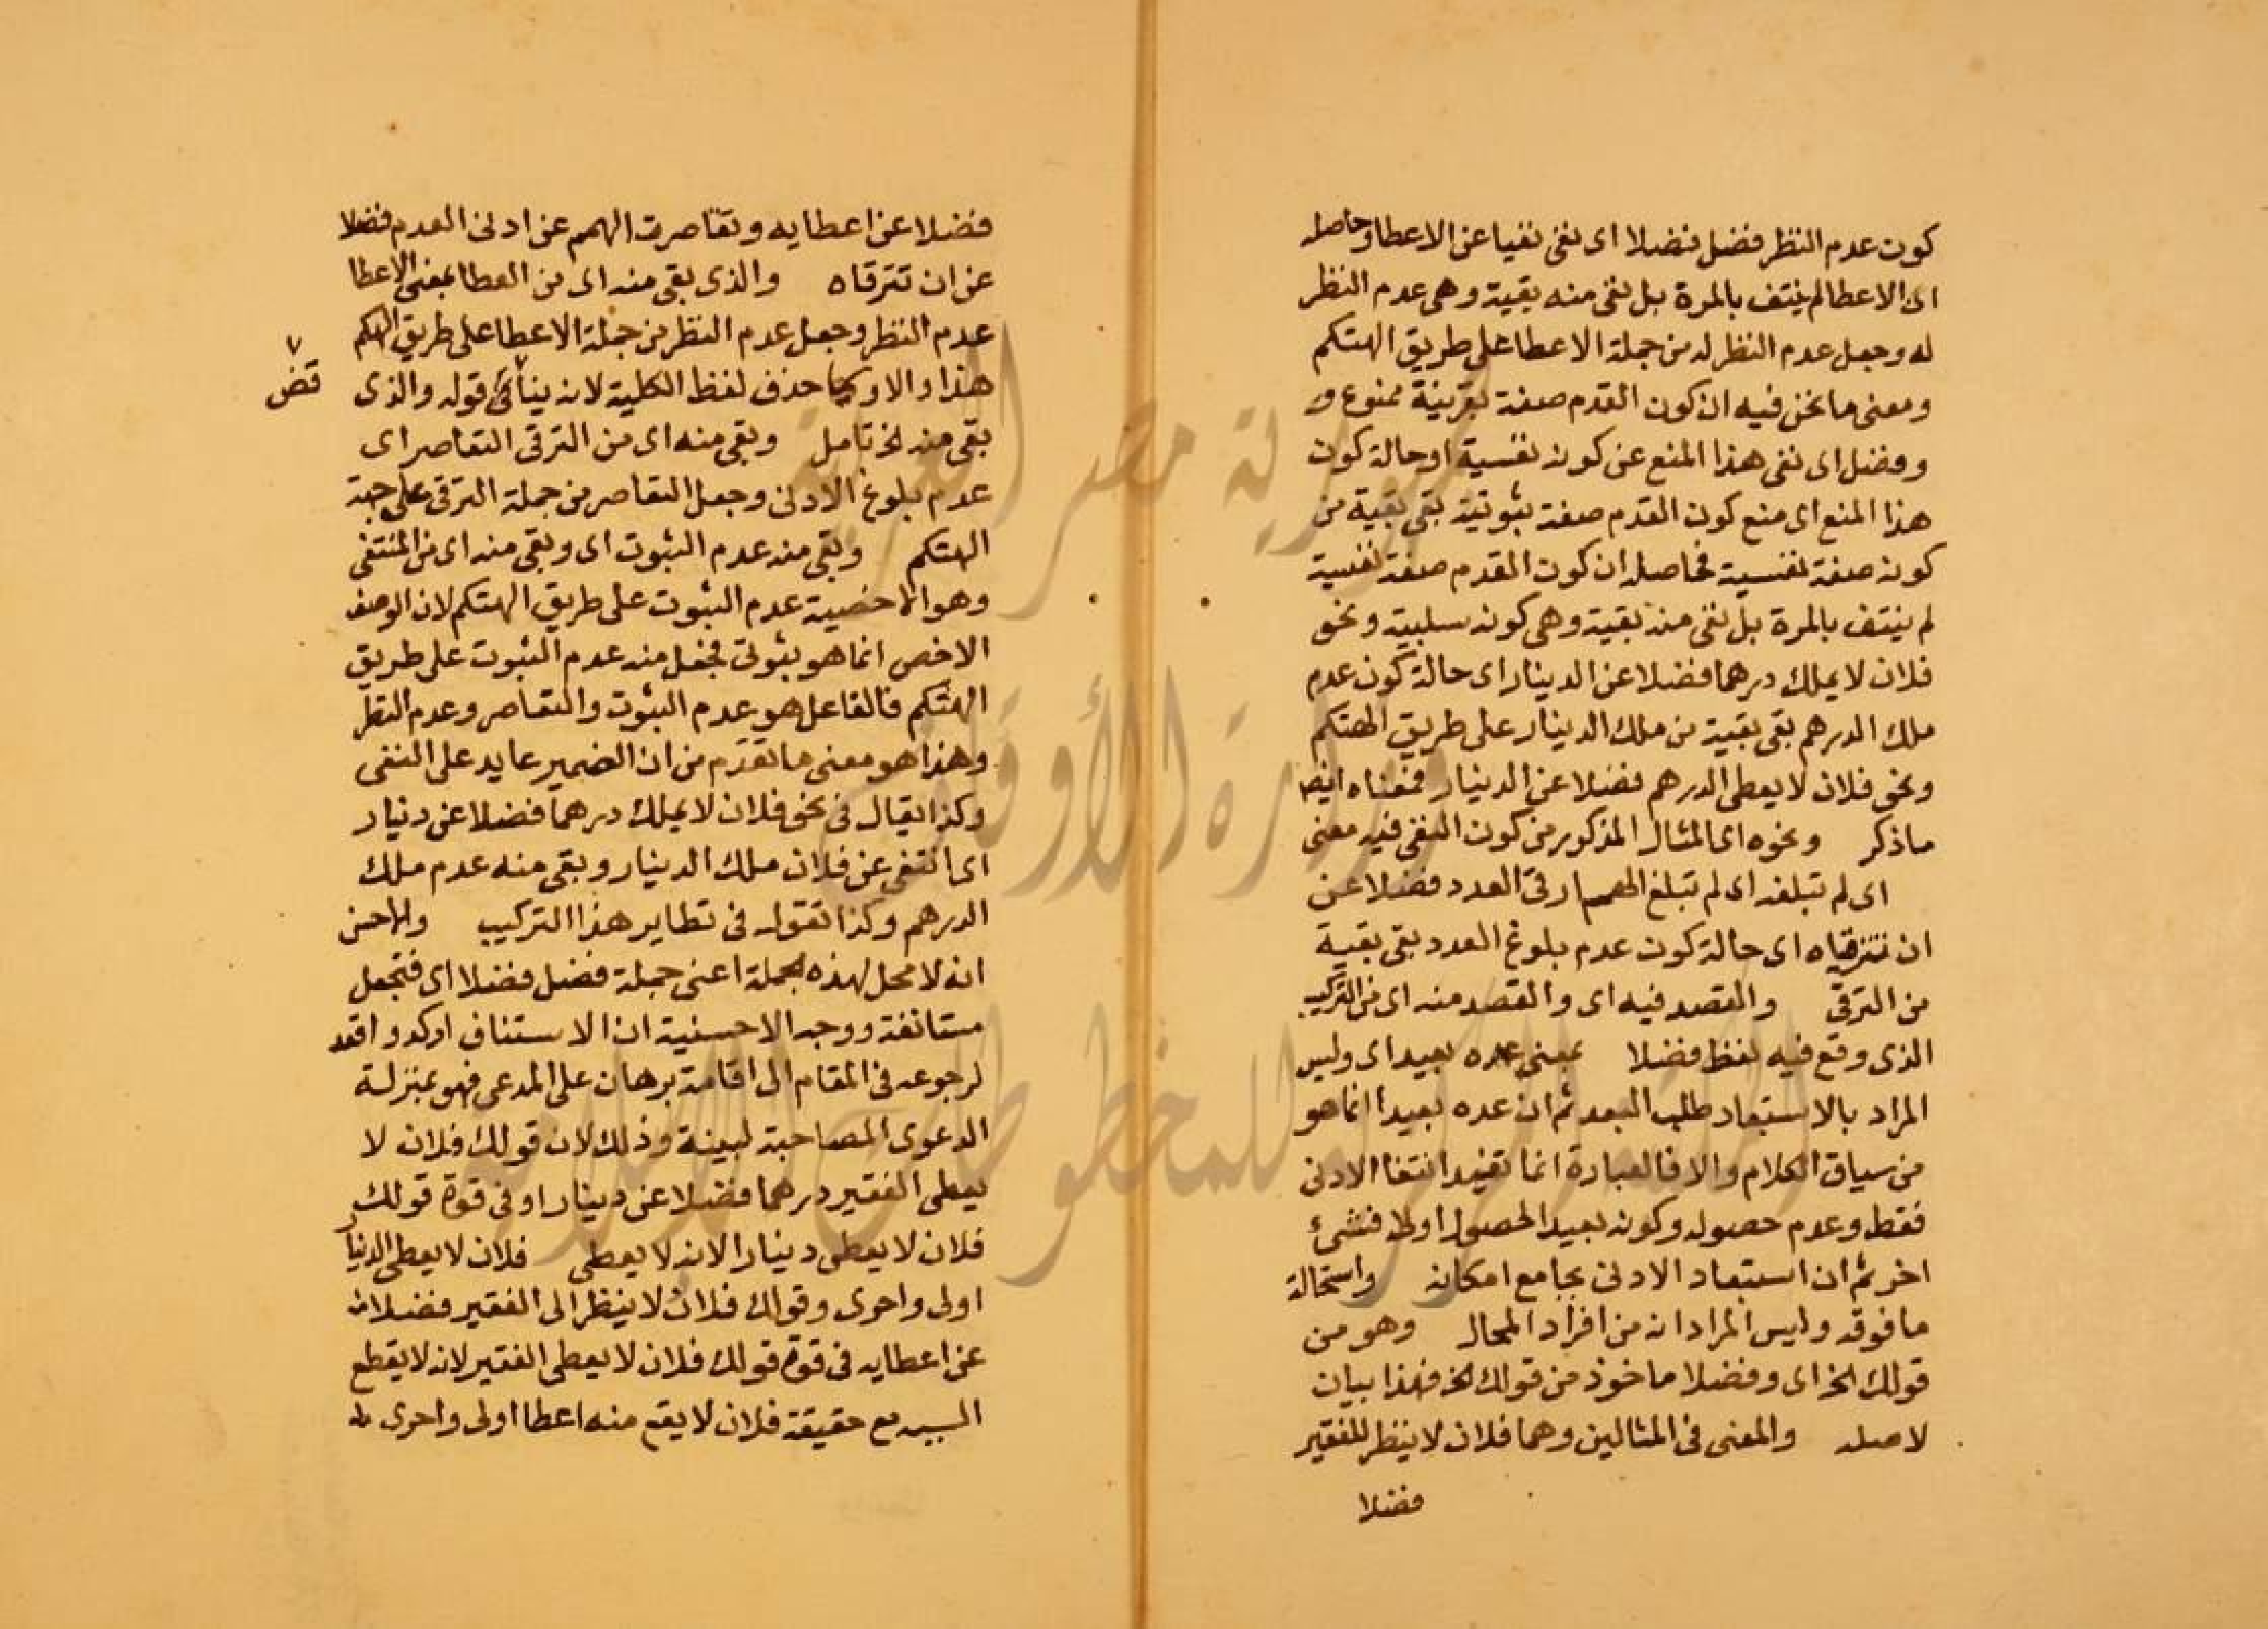 كون عدم النظر فضل فضلا اى نفى نفيا عن الاعطا وحاصله
ان الاعطا لم ينتف بالمرة بل نفى منه بقية وهى عدم النظر
له وجعل عدم النظر له من جملة الاعطا على طريق التهكم
ومعنى ما نحن فيه ان كون القدم صفة ممنوع
وفضل اى نفى هذا المنع عن كونه نفسية او حالة كون
هذا المنع اى منع كون القدم صفة ثبوتية بقى بقية من
كونه صفة نفسية فحاصله ان كون القدم صفة نفسية
لم ينتف بالمرة بل نفى منه بقية وهى كونه سلبية ونحو
فلان لا يملك درهما فضلا عن الدينار اى حالة كون عدم
ملك الدرهم بقى بقية من ملك الدينار على طريق التهكم
ونحو فلان لا يعطى الدرهم فضلا عن الدينار فمعناه ايضا
ما ذكر ونحوه اى المثال المذكور من كون النفى فيه معنى
اى لم تبلغه اى لم تبلغ الهمم ادنى العدد فضلا عن
ان تترقاه اى حالة كون عدم بلوغ العدد بقى بقية
من الترقى والقصد فيه اى والقصد منه اى من التركيب
الذى وقع فيه لفظ فضلا بمعنى عده بعيدا اى وليس
المراد بالاستبعاد طلب البعد ثم ان عده بعيدا انما هو
من سياق الكلام والا فالعبارة انما تفيد انتفا الادنى
فقط وعدم حصوله وكونه بعيد الحصول اولا فشئ
اخر ثم ان استبعاد الادنى يجامع امكانه واستحالة
ما فوقه وليس المراد انه من افراد المحال وهو من
قولك الخ اى وفضلا ماخوذ من قولك الخ فهذا بيان
لاصله والمعنى فى المثالين وهما فلان لا ينظر للفقير
فضلا
فضلا عن اعطايه وتقاصرت الهمم عن ادنى العدم فضلا
عن ان تترقاه والذى بقى منه اى من العطا بمعنى الاعطا
عدم النظر وجعل عدم النظر من جملة الاعطا على طريق التهكم
هذا والاولى حذف لفظ الكلية لانه قوله والذى
بقى منه الخ تامل وبقى منه اى من الترقى التقاصر اى
عدم بلوغ الادنى وجعل التقاصر من جملة الترقى على جهة
التهكم وبقى منه عدم الثبوت اى وبقى منه اى من المنتفى
وهو الاخصية عدم الثبوت على طريق التهكم لان الوصف
الاخص انما هو ثبوتى فجعل منه عدم الثبوت على طريق
التهكم فالفاعل هو عدم الثبوت والتقاصر وعدم النظر
وهذا هو معنى ما تقدم من ان الضمير عايد على النفى
وكذا يقال فى نحو فلان لا يملك درهما فضلا عن دينار
اى انتفى عن فلان ملك الدينار وبقى منه عدم ملك
الدرهم وكذا تقول فى نظاير هذا التركيب والاحسن
انه لا محل لهذه الجملة اعنى جملة فضل فضلا اى فتجعل
مستانفة ووجه الاحسنية ان الاستناف اوكد واقعد
لرجوعه فى المقام الى اقامة برهان على المدعى فهو بمنزلة
الدعوى المصاحبة لبينة وذلك لان قولك فلان لا
يعطى الفقير درهما فضلا عن دينار او فى قوة قولك
فلان لا يعطى دينارا لانه لا يعطى فلان لا يعطى الدينار
اولى واحرى وقولك فلان لا ينظر الى الفقير فضلا
عن اعطايه فى قوة قولك فلان لا يعطى الفقير لانه لا يقطع
مع حقيقة فلان لا يقع منه اعطا اولى واحرى